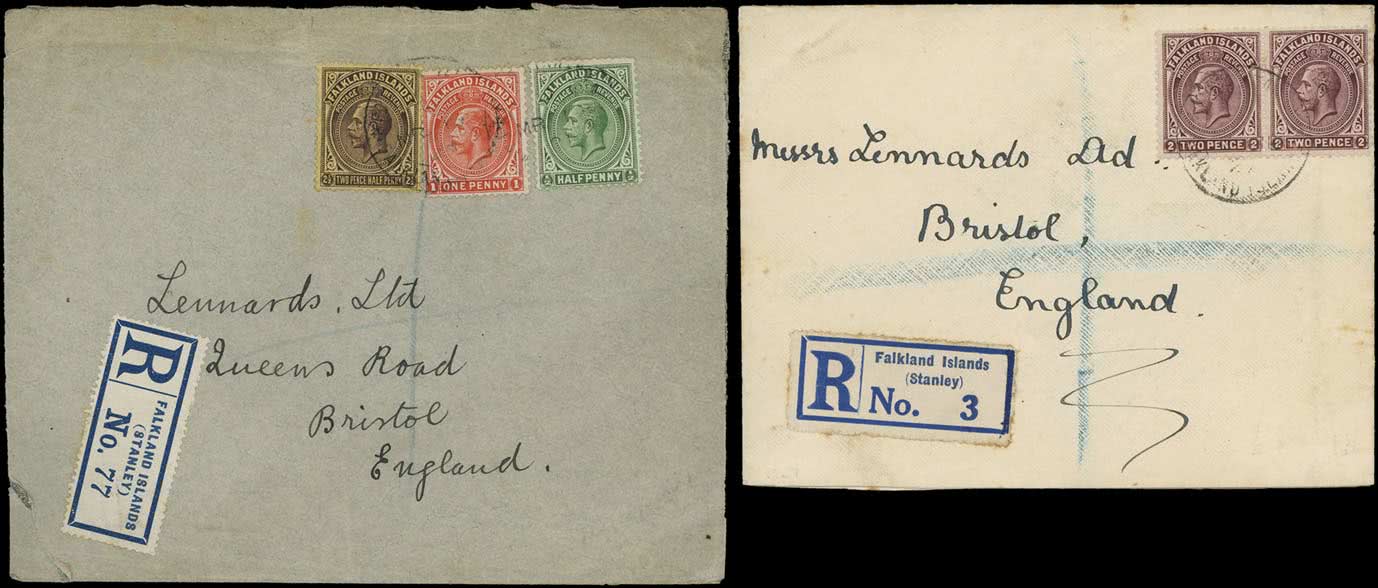 FALKLAND ISLANDS
POSTAGE REVENUE
2½ TWO PENCE HALF PENNY 2½
FALKLAND ISLANDS
POSTAGE REVENUE
1 ONE PENNY 1
FALKLAND ISLANDS
POSTAGE REVENUE
½ HALF PENNY ½
Lennards. Ltd
Queens Road
Bristol
England.
R
FALKLAND ISLANDS
(STANLEY)
No. 77
FALKLAND ISLANDS
POSTAGE REVENUE
2 TWO PENCE 2
FALKLAND ISLANDS
POSTAGE REVENUE
2 TWO PENCE 2
Messrs Lennards Ltd.
Bristol,
England.
R
Falkland Islands
(Stanley)
No. 3